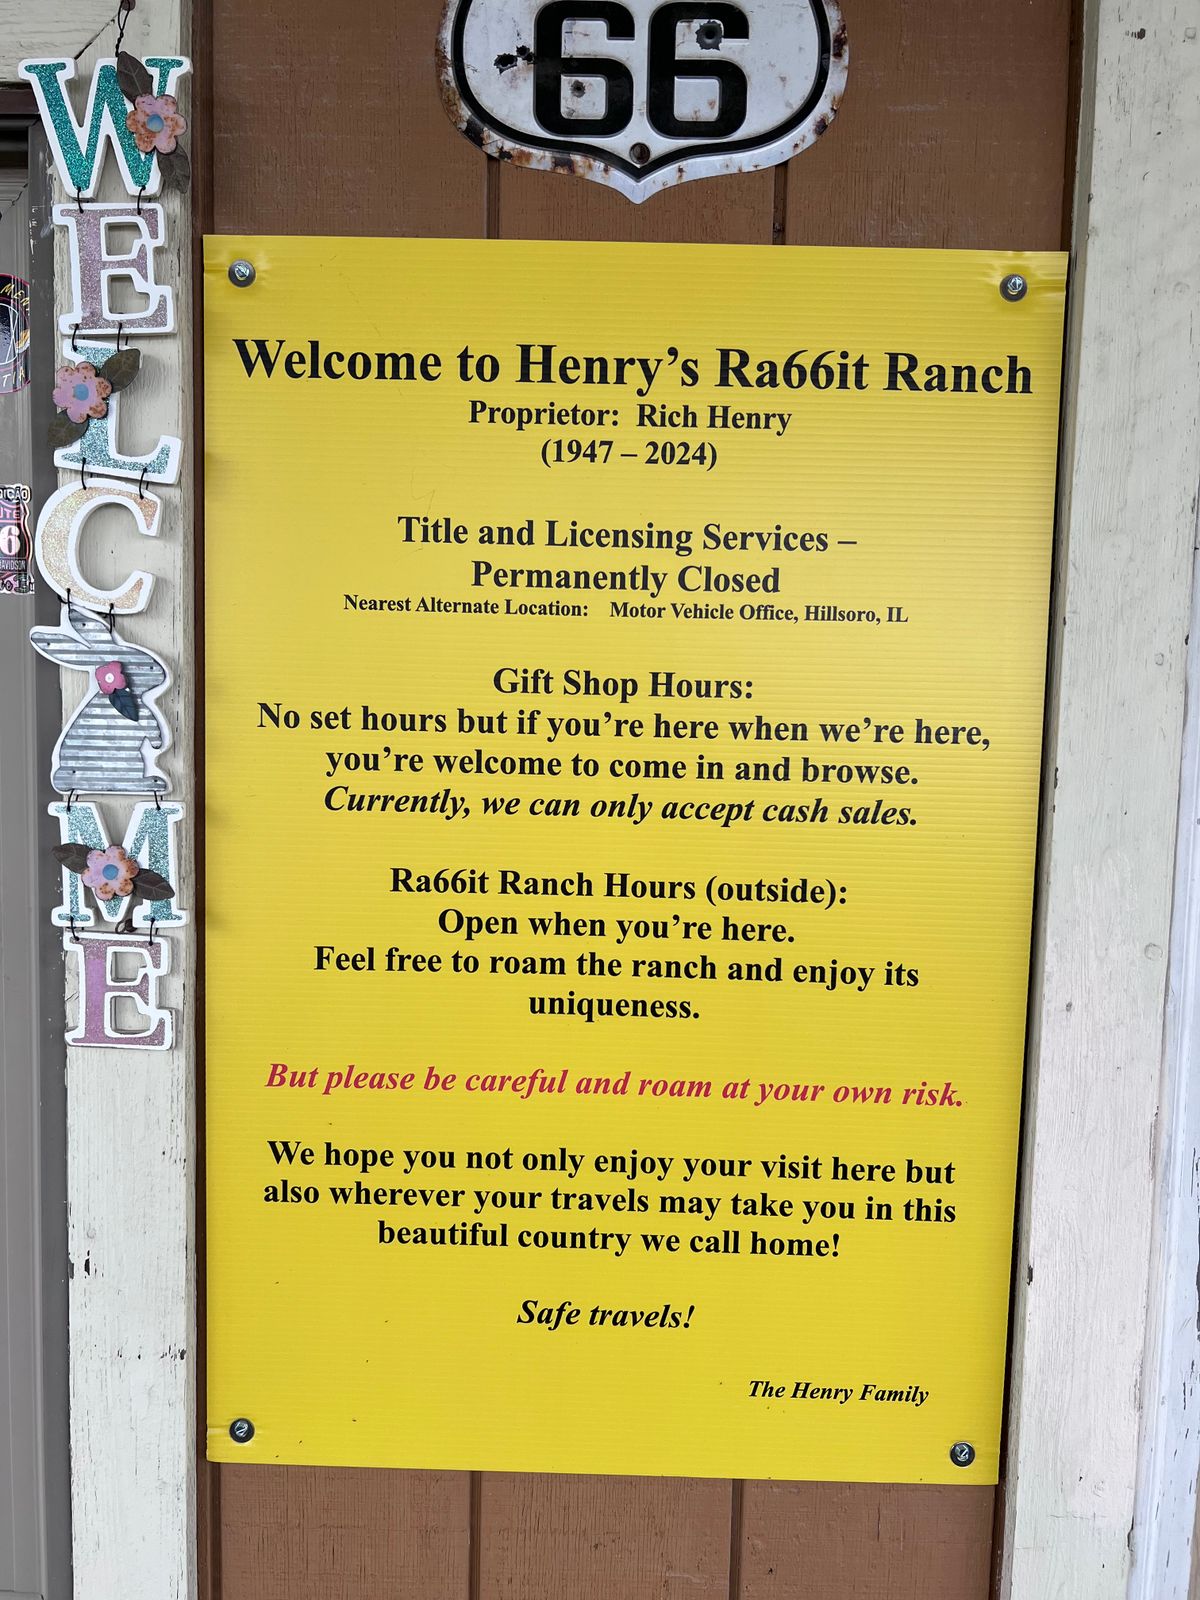 66
WELC ME
Welcome to Henry's Ra66it Ranch
Proprietor: Rich Henry
(1947 – 2024)
Title and Licensing Services –
Permanently Closed
Nearest Alternate Location: Motor Vehicle Office, Hillsoro, IL
Gift Shop Hours:
No set hours but if you're here when we're here,
you're welcome to come in and browse.
Currently, we can only accept cash sales.
Ra66it Ranch Hours (outside):
Open when you're here.
Feel free to roam the ranch and enjoy its
uniqueness.
But please be careful and roam at your own risk.
We hope you not only enjoy your visit here but
also wherever your travels may take you in this
beautiful country we call home!
Safe travels!
The Henry Family